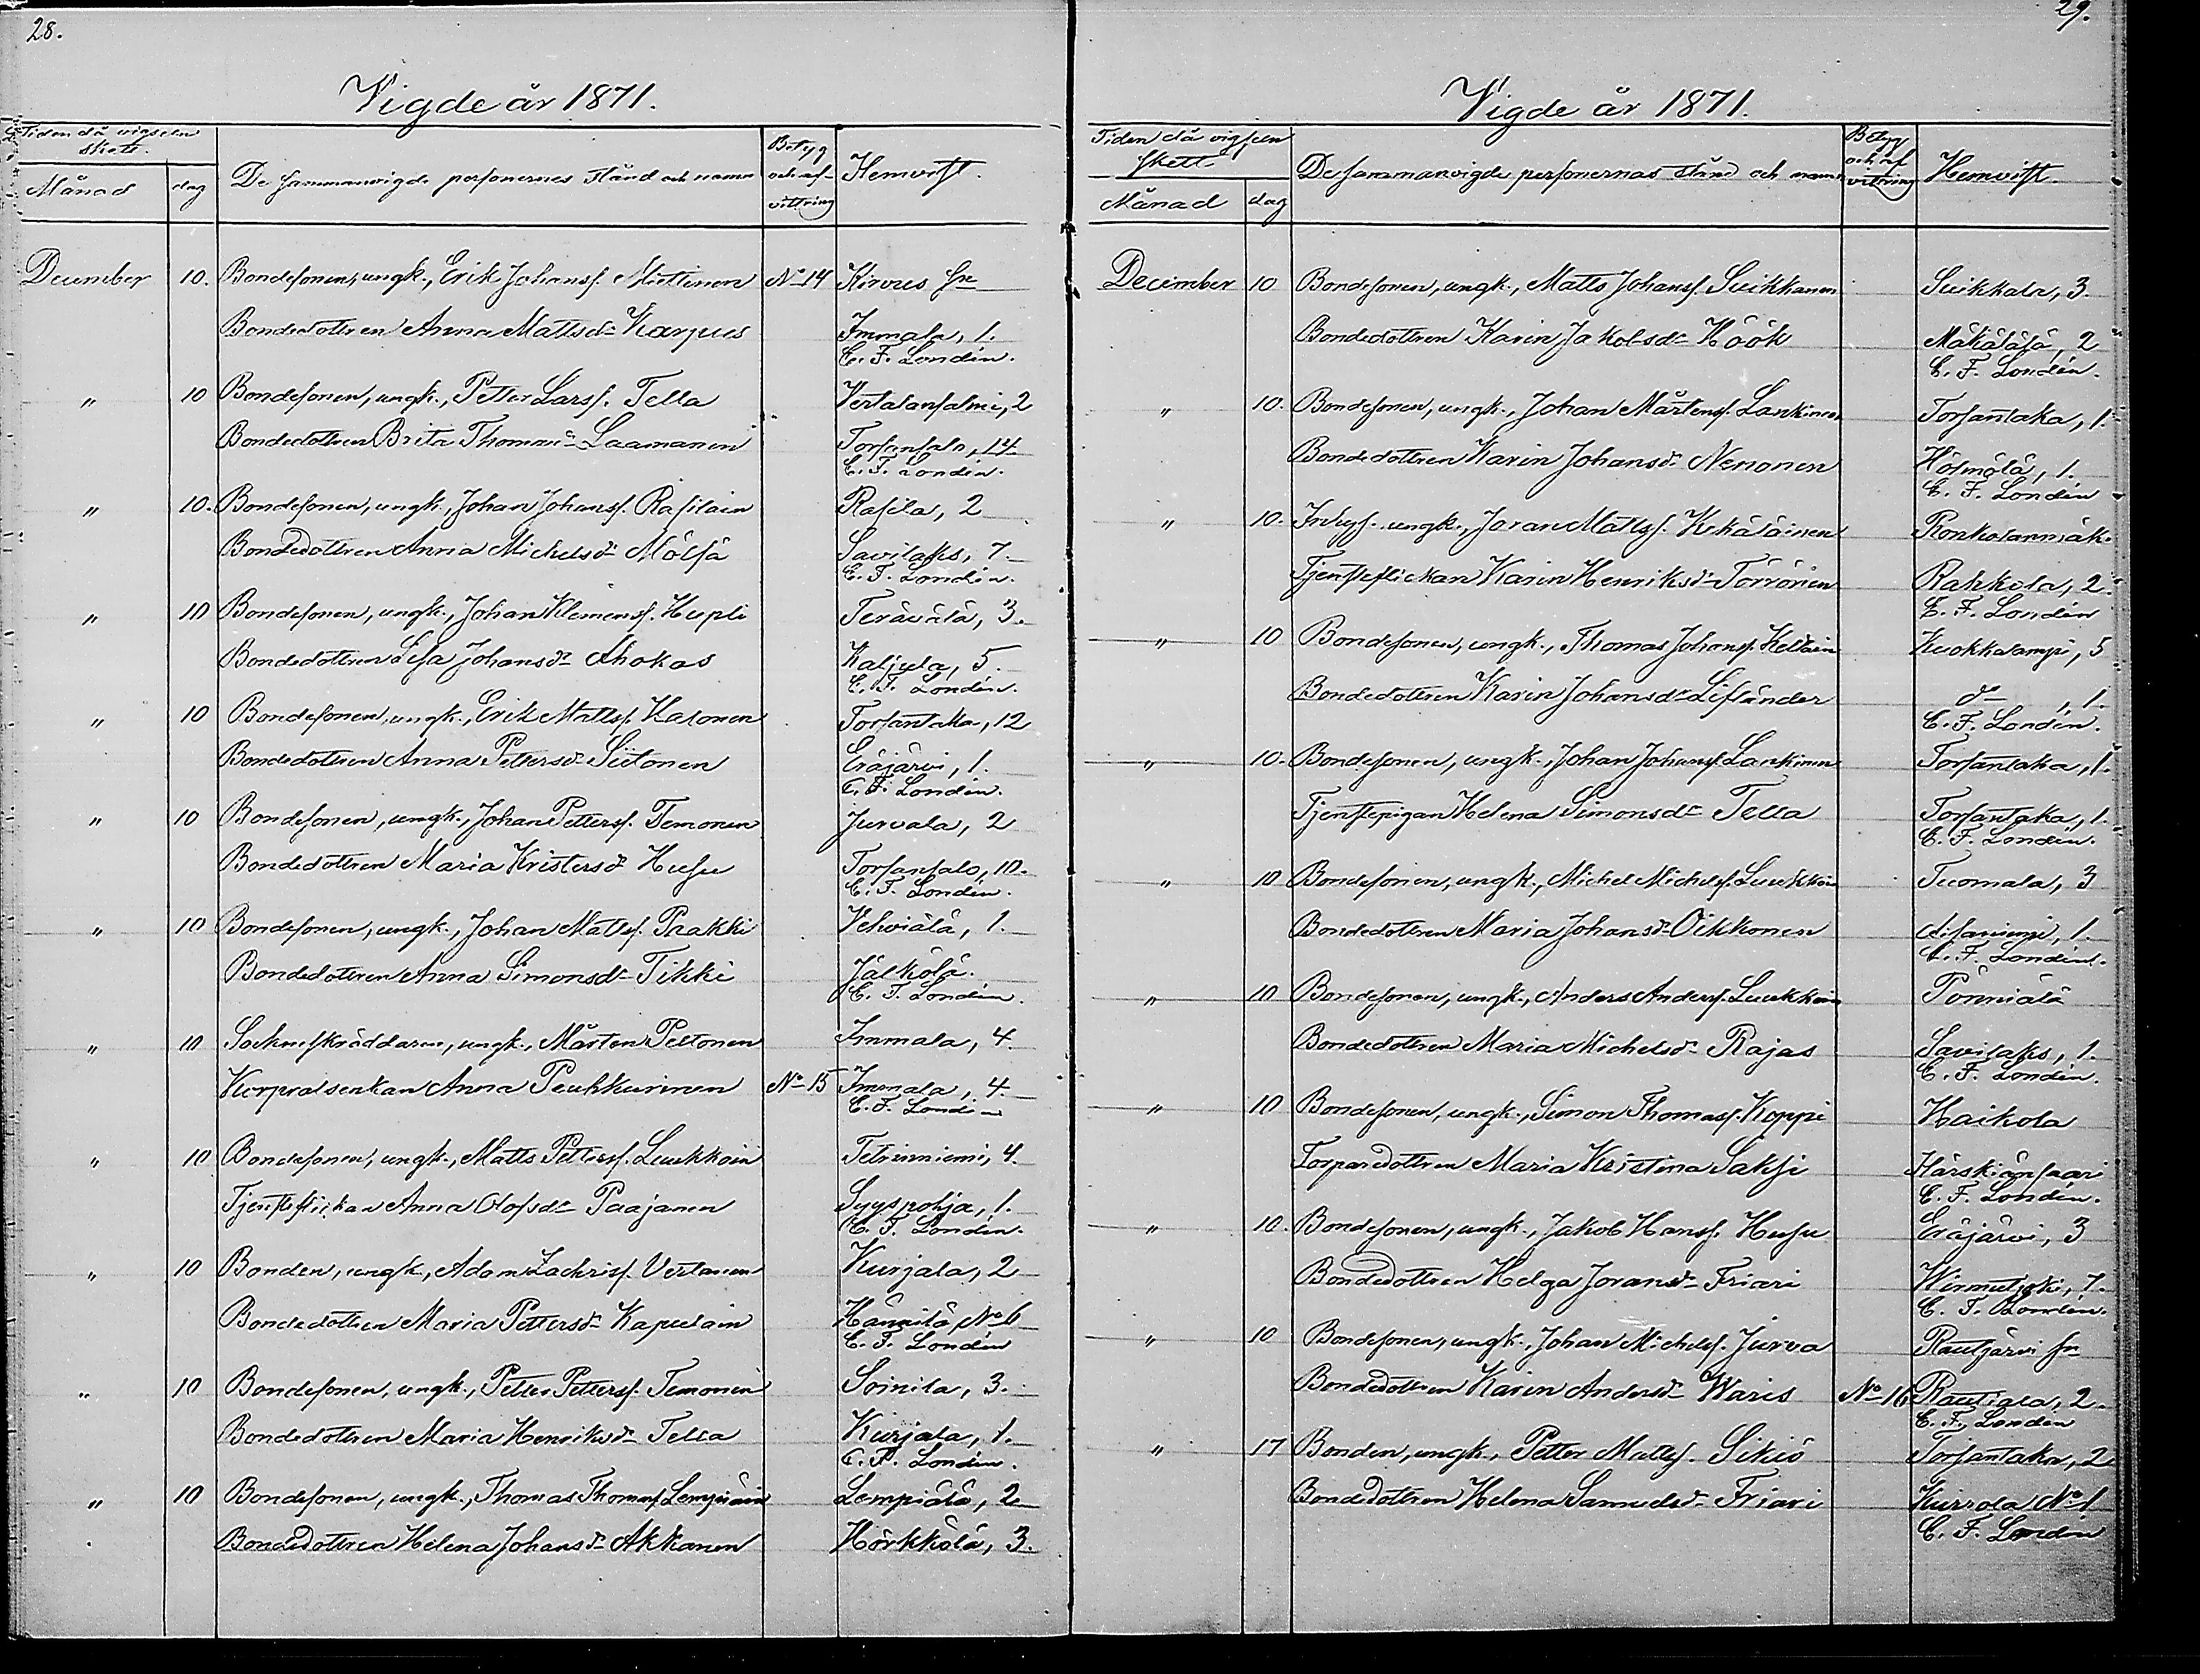 28.
Vigde år 1871.
Tiden då vigseln skett.
Månad dag De sammanvigde personernes stånd och namn Betyg och af-vittring Hemvist.
December 10. Bondesonen, ungk., Erik Johanss. Miettinen No 14 Kirvus sn
Bondedottren Anna Mattsdr Karpus Immala, 1.
C. F. Londén.
" 10 Bondesonen, ungk., Petter Larss. Tella Vertalansalmi, 2
Bondedottren Brita Thomasdr Laamanen Torsansalo, 14
C. F. Londén.
" 10. Bondesonen, ungk., Johan Johanss. Rasilain Rasila, 2
Bondedottren Anna Michelsdr Mölsä Savilaks, 7.
C. F. Londén.
" 10 Bondesonen, ungk., Johan Klemenss. Hupli Terävälä, 3.
Bondedottren Lisa Johansdr Ahokas Kaljula, 5.
C. F. Londén.
" 10 Bondesonen, ungk., Erik Mattss. Kasonen Torsantaka, 12
Bondedottren Anna Pettersdr Siitonen Eräjärvi, 1.
C. F. Londén.
" 10 Bondesonen, ungk., Johan Petterss. Temonen Jurvala, 2
Bondedottren Maria Kristersdr Husu Torsansalo, 10.
C. F. Londén.
" 10 Bondesonen, ungk., Johan Mattss. Paakki Vehviälä, 1.
Bondedottren Anna Simonsdr Tikki Jälkölä.
C. F. Londén.
" 10 Socknskräddaren, ungk., Mårten Peltonen Immala, 4.
Korpralsenkan Anna Peuhkurinen No 15 Immala, 4.
C. F. Londén
" 10 Bondesonen, ungk., Matts Petterss. Luukkoin Tetriniemi, 4.
Tjensteflickan Anna Olofsdr Paajanen Syyspohja, 1.
C. F. Londén.
" 10 Bonden, ungk., Adam Zachriss. Vertanen Kurjala, 2
Bondedottren Maria Pettersdr Kapulain Hännilä No 6
C. F. Londén
" 10 Bondesonen, ungk., Petter Petterss. Temonen Soinila, 3.
Bondedottren Maria Henriksdr Tella Kurjala, 1.
C. F. Londén.
" 10 Bondesonen, ungk., Thomas Thomass. Lempiäin Lempiälä, 2
Bondedottren Helena Johansdr Akkanen Hörkkölä, 3.
29.
Vigde år 1871.
Tiden då vigseln skett.
Månad dag De sammanvigde personernas stånd och namn Betyg och af vittring Hemvist.
December 10 Bondesonen, ungk., Matts Johanss. Suikkanen Suikkala, 3.
Bondedottren Karin Jakobsdr Höök Mäkälälä, 2
C. F. Londén.
" 10. Bondesonen, ungk., Johan Mårtenss. Lankinen Torsantaka, 1.
Bondedottren Karin Johansdr Nenonen 1.
C. F. Londén
" 10. Inhys. ungk., Joran Mattss. Kekäläinen
Tjensteflickan Karin Henriksdr Törrönen Rahkola, 2.
C. F. Londén
" 10 Bondesonen, ungk., Thomas Johanss. Keltain Kuokkalampi, 5
Bondedottren Karin Johansdr Lifländer do, 1.
C. F. Londén.
" 10. Bondesonen, ungk., Johan Johanss. Lankinen Torsantaka, 1.
Tjenstepigan Helena Simonsdr Tella Torsantaka, 1.
C. F. Londén.
" 10 Bondesonen, ungk., Michel Michelss. Luukkoin Tuomala, 3
Bondedottren Maria Johansdr Oikkonen 1.
C. F. Londén.
" 10 Bondesonen, ungk., Anders Anderss. Luukkoin Pönniälä
Bondedottren Maria Michelsdr Rajas Savilaks, 1.
C. F. Londén.
" 10 Bondesonen, ungk., Simon Thomass. Koppi Haikola
Torparedottren Maria Kristina Saksi Härskiänsaari
C. F. Londén.
" 10. Bondesonen, ungk., Jakob Hanss. Husu Eräjärvi, 3
Bondedottren Helga Joransdr Friari Wirmutjoki, 7.
C. F. Londén.
" 10 Bondesonen, ungk., Johan Michelss. Jurva Rautjärvi sn
Bondedottren Karin Andersdr Waris No 16 Rautiala, 2.
C. F. Londén
" 17 Bonden, ungk., Petter Mattss. Sikiö Torsantaka, 2
Bondedottren Helena Samuelsdr Friari Kurrola No 1
C. F. Londén